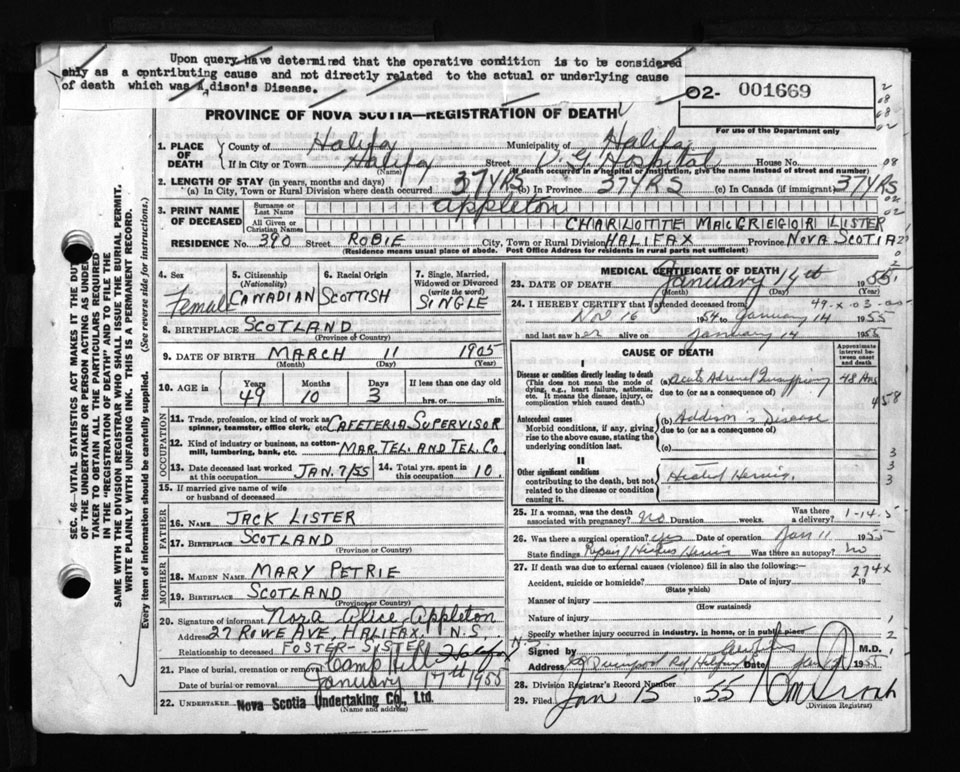 Upon query have determined that the operative condition is to be considered
only as a contributing cause and not directly related to the actual or underlying cause
of death which was Addison's Disease.
O2- 001669
For use of the Department only
PROVINCE OF NOVA SCOTIA—REGISTRATION OF DEATH
1. PLACE OF DEATH
County of Halifax Municipality of Halifax
If in City or Town Halifax Street V. G. Hospital House No.
(Name) (If death occurred in a hospital or institution, give the name instead of street and number)
2. LENGTH OF STAY (in years, months and days)
(a) In City, Town or Rural Division where death occurred 37 YRS (b) In Province 37 YRS (c) In Canada (if immigrant) 37 YRS
3. PRINT NAME OF DECEASED
Surname or Last Name Appleton
All Given or Christian Names CHARLOTTE MACGREGOR LISTER
RESIDENCE No. 390 Street ROBIE City, Town or Rural Division HALIFAX Province NOVA SCOTIA
(Residence means usual place of abode. Post Office Address for residents in rural parts not sufficient)
4. Sex Female
5. Citizenship (Nationality) CANADIAN
6. Racial Origin SCOTTISH
7. Single, Married, Widowed or Divorced (write the word) SINGLE
8. BIRTHPLACE SCOTLAND
(Province of Country)
9. DATE OF BIRTH MARCH 11 1905
(Month) (Day) (Year)
10. AGE in Years 49 Months 10 Days 3 If less than one day old hrs. or min.
OCCUPATION
11. Trade, profession, or kind of work as spinner, teamster, office clerk, etc. CAFETERIA SUPERVISOR
12. Kind of industry or business, as cotton-mill, lumbering, bank, etc. MAR. TEL. AND TEL. CO.
13. Date deceased last worked at this occupation JAN. 7/55 14. Total yrs. spent in this occupation 10
15. If married give name of wife or husband of deceased
FATHER
16. NAME JACK LISTER
17. BIRTHPLACE SCOTLAND
(Province or Country)
MOTHER
18. MAIDEN NAME MARY PETRIE
19. BIRTHPLACE SCOTLAND
(Province or Country)
20. Signature of informant Nora Alice Appleton
Address 27 ROWE AVE, HALIFAX. N.S.
Relationship to deceased FOSTER-SISTER
21. Place of burial, cremation or removal Camp Hill Halifax N.S.
Date of burial or removal January 17th 1955
22. UNDERTAKER Nova Scotia Undertaking Co., Ltd.
(Name and address)
MEDICAL CERTIFICATE OF DEATH
23. DATE OF DEATH January 14th 1955
(Month) (Day) (Year)
24. I HEREBY CERTIFY that I attended deceased from
Nov 16 1954 to January 14 1955
and last saw her alive on January 14 1955
CAUSE OF DEATH
Approximate interval between onset and death
I
Disease or condition directly leading to death
(This does not mean the mode of dying, e.g., heart failure, asthenia, etc. It means the disease, injury, or complication which caused death.)
(a) Acute Adrenal Insufficiency 48 Hrs
due to (or as a consequence of)
458
Antecedent causes
Morbid conditions, if any, giving rise to the above cause, stating the underlying condition last.
(b) Addison's Disease
due to (or as a consequence of)
(c)
II
Other significant conditions
contributing to the death, but not related to the disease or condition causing it.
Hiatus Hernia.
25. If a woman, was the death associated with pregnancy? No Duration weeks. Was there a delivery?
26. Was there a surgical operation? Yes Date of operation Jan 11 1955
State findings Repair Hiatus Hernia Was there an autopsy? No
27. If death was due to external causes (violence) fill in also the following:—
274X
Accident, suicide or homicide? Date of injury 19
(State which)
Manner of injury
(How sustained)
Nature of injury
Specify whether injury occurred in industry, in home, or in public place
Signed by M.D.
Address Halifax Date Jan 1955
28. Division Registrar's Record Number
29. Filed Jan 15 1955
(Division Registrar)
SEC. 46—VITAL STATISTICS ACT MAKES IT THE DUTY
OF THE UNDERTAKER OR PERSON ACTING AS UNDERTAKER
TO OBTAIN ALL THE PARTICULARS REQUIRED
IN THE "REGISTRATION OF DEATH" AND TO FILE THE
SAME WITH THE DIVISION REGISTRAR WHO SHALL ISSUE THE BURIAL PERMIT.
WRITE PLAINLY WITH UNFADING INK. THIS IS A PERMANENT RECORD.
Every item of information should be carefully supplied. (See reverse side for instructions.)